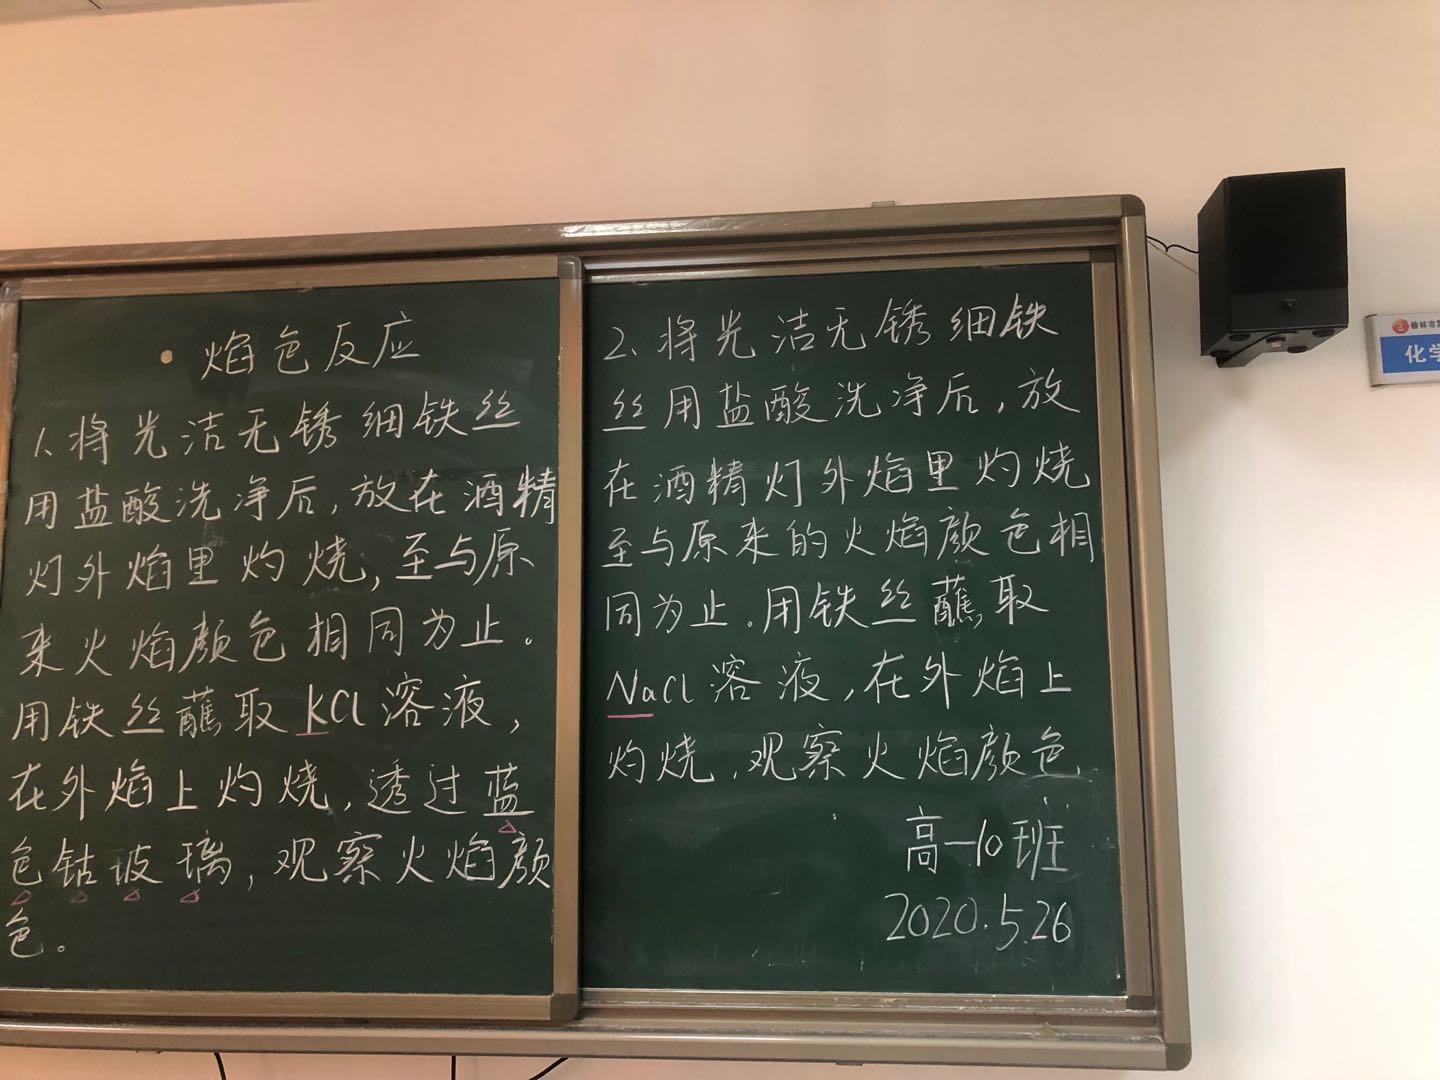 焰色反应
1、将光洁无锈细铁丝
用盐酸洗净后,放在酒精
灯外焰里灼烧,至与原
来火焰颜色相同为止。
用铁丝蘸取KCl溶液,
在外焰上灼烧,透过蓝
色钴玻璃,观察火焰颜
色。
2、将光洁无锈细铁
丝用盐酸洗净后,放
在酒精灯外焰里灼烧
至与原来的火焰颜色相
同为止.用铁丝蘸取
NaCl溶液,在外焰上
灼烧,观察火焰颜色
高一10班
2020.5.26
2 榆林市第
化学